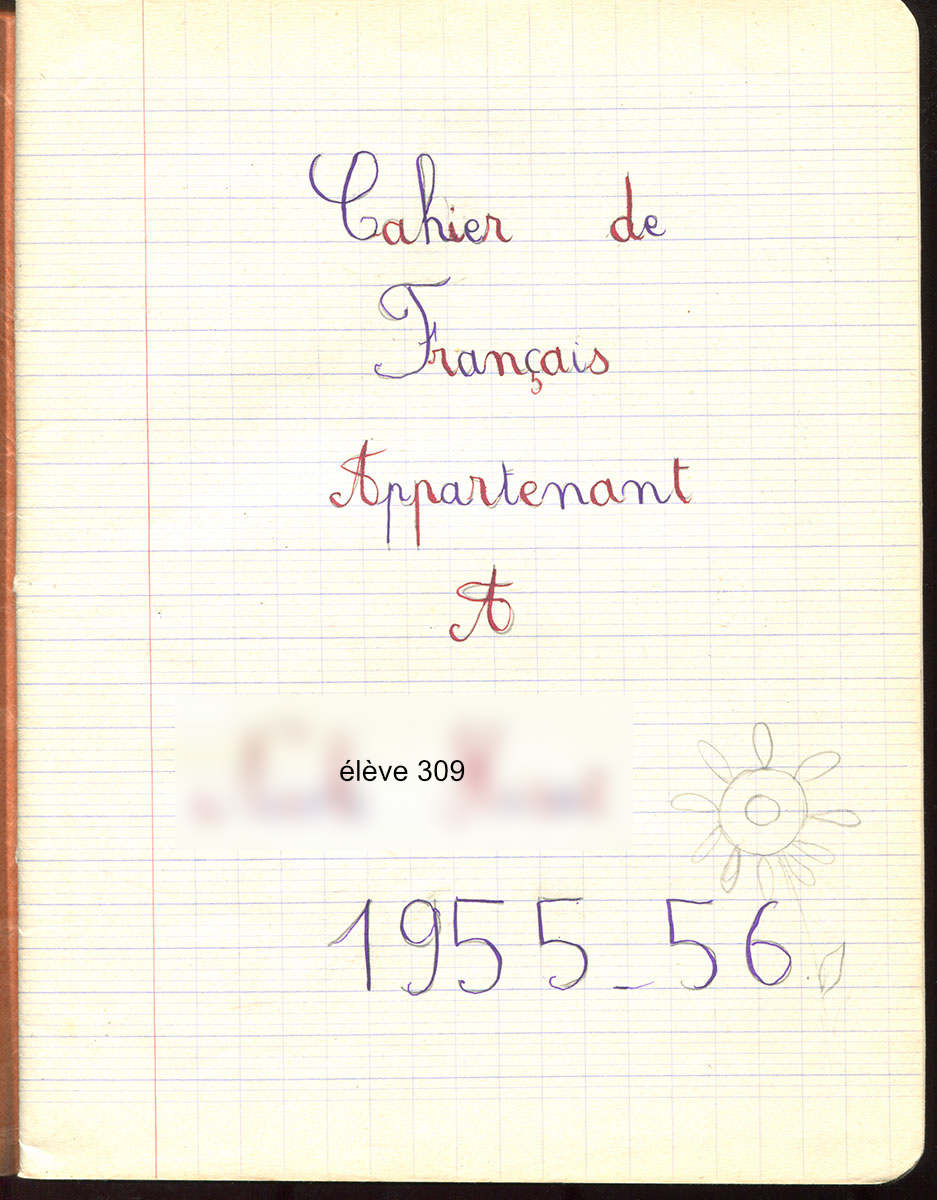 Cahier de
Français
Appartenant
A
élève 309
1955_56